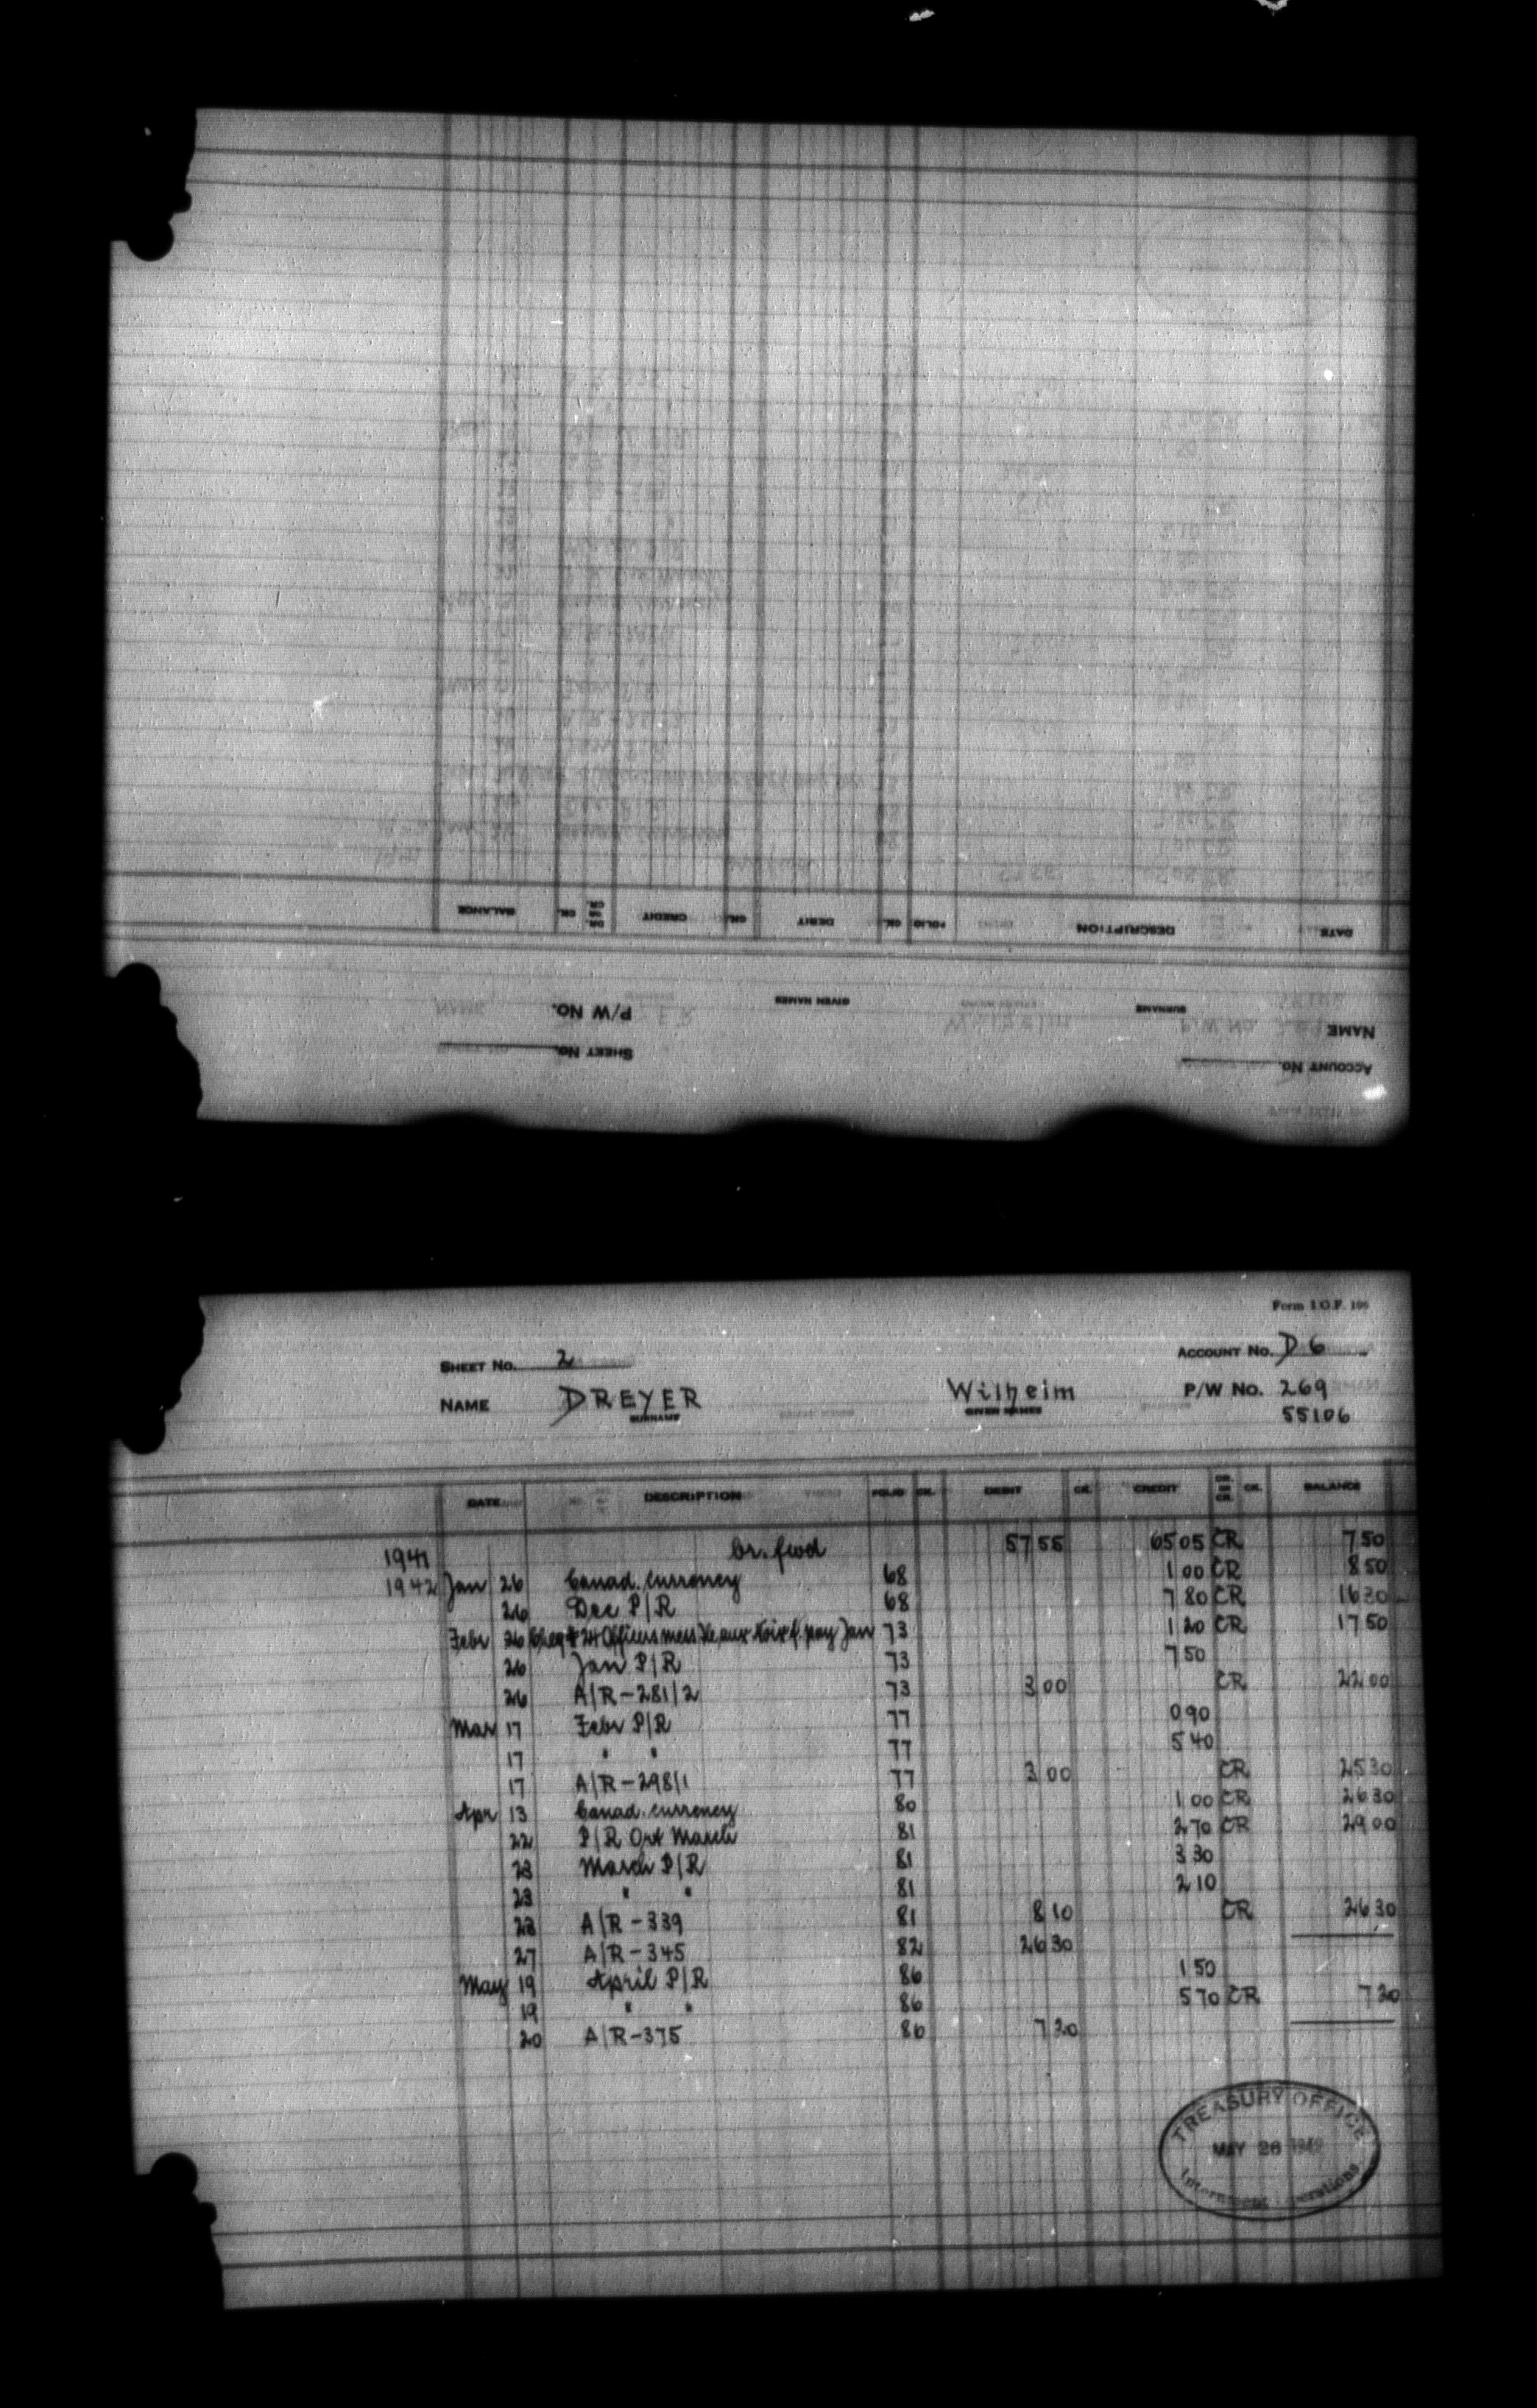 BALANCE CK. DR. OR CR. CREDIT CK. DEBIT CK. FOLIO DESCRIPTION DATE
P/W No. GIVEN NAMES SURNAME NAME
SHEET No. ACCOUNT No.
Form I.O.F. 106
SHEET No. 2 ACCOUNT No. D 6
NAME DREYER Wilhelm P/W No. 269
SURNAME GIVEN NAMES 55106
DATE DESCRIPTION FOLIO CK. DEBIT CK. CREDIT DR. OR CR. CK. BALANCE
1941 br. fwd 57 55 65 05 CR 7 50
1942 Jan 26 Canad. currency 68 1 00 CR 8 50
26 Dec P/R 68 7 80 CR 16 30
Febr 26 Cheq # 24 Officers mess Ile aux Noix f. pay Jan 73 1 20 CR 17 50
26 Jan P/R 73 7 50
26 A/R-281/2 73 3 00 CR 22 00
Mar 17 Febr P/R 77 0 90
17 " " 77 5 40
17 A/R-298/1 77 3 00 CR 25 30
Apr 13 Canad. currency 80 1 00 CR 26 30
22 P/R Ort March 81 2 70 CR 29 00
23 March P/R 81 3 30
23 " " 81 2 10
23 A/R-339 81 8 10 CR 26 30
27 A/R-345 82 26 30
May 19 April P/R 86 1 50
19 " " 86 5 70 CR 7 20
20 A/R-375 86 7 20
TREASURY OFFICE
MAY 26 1942
Internment Operations